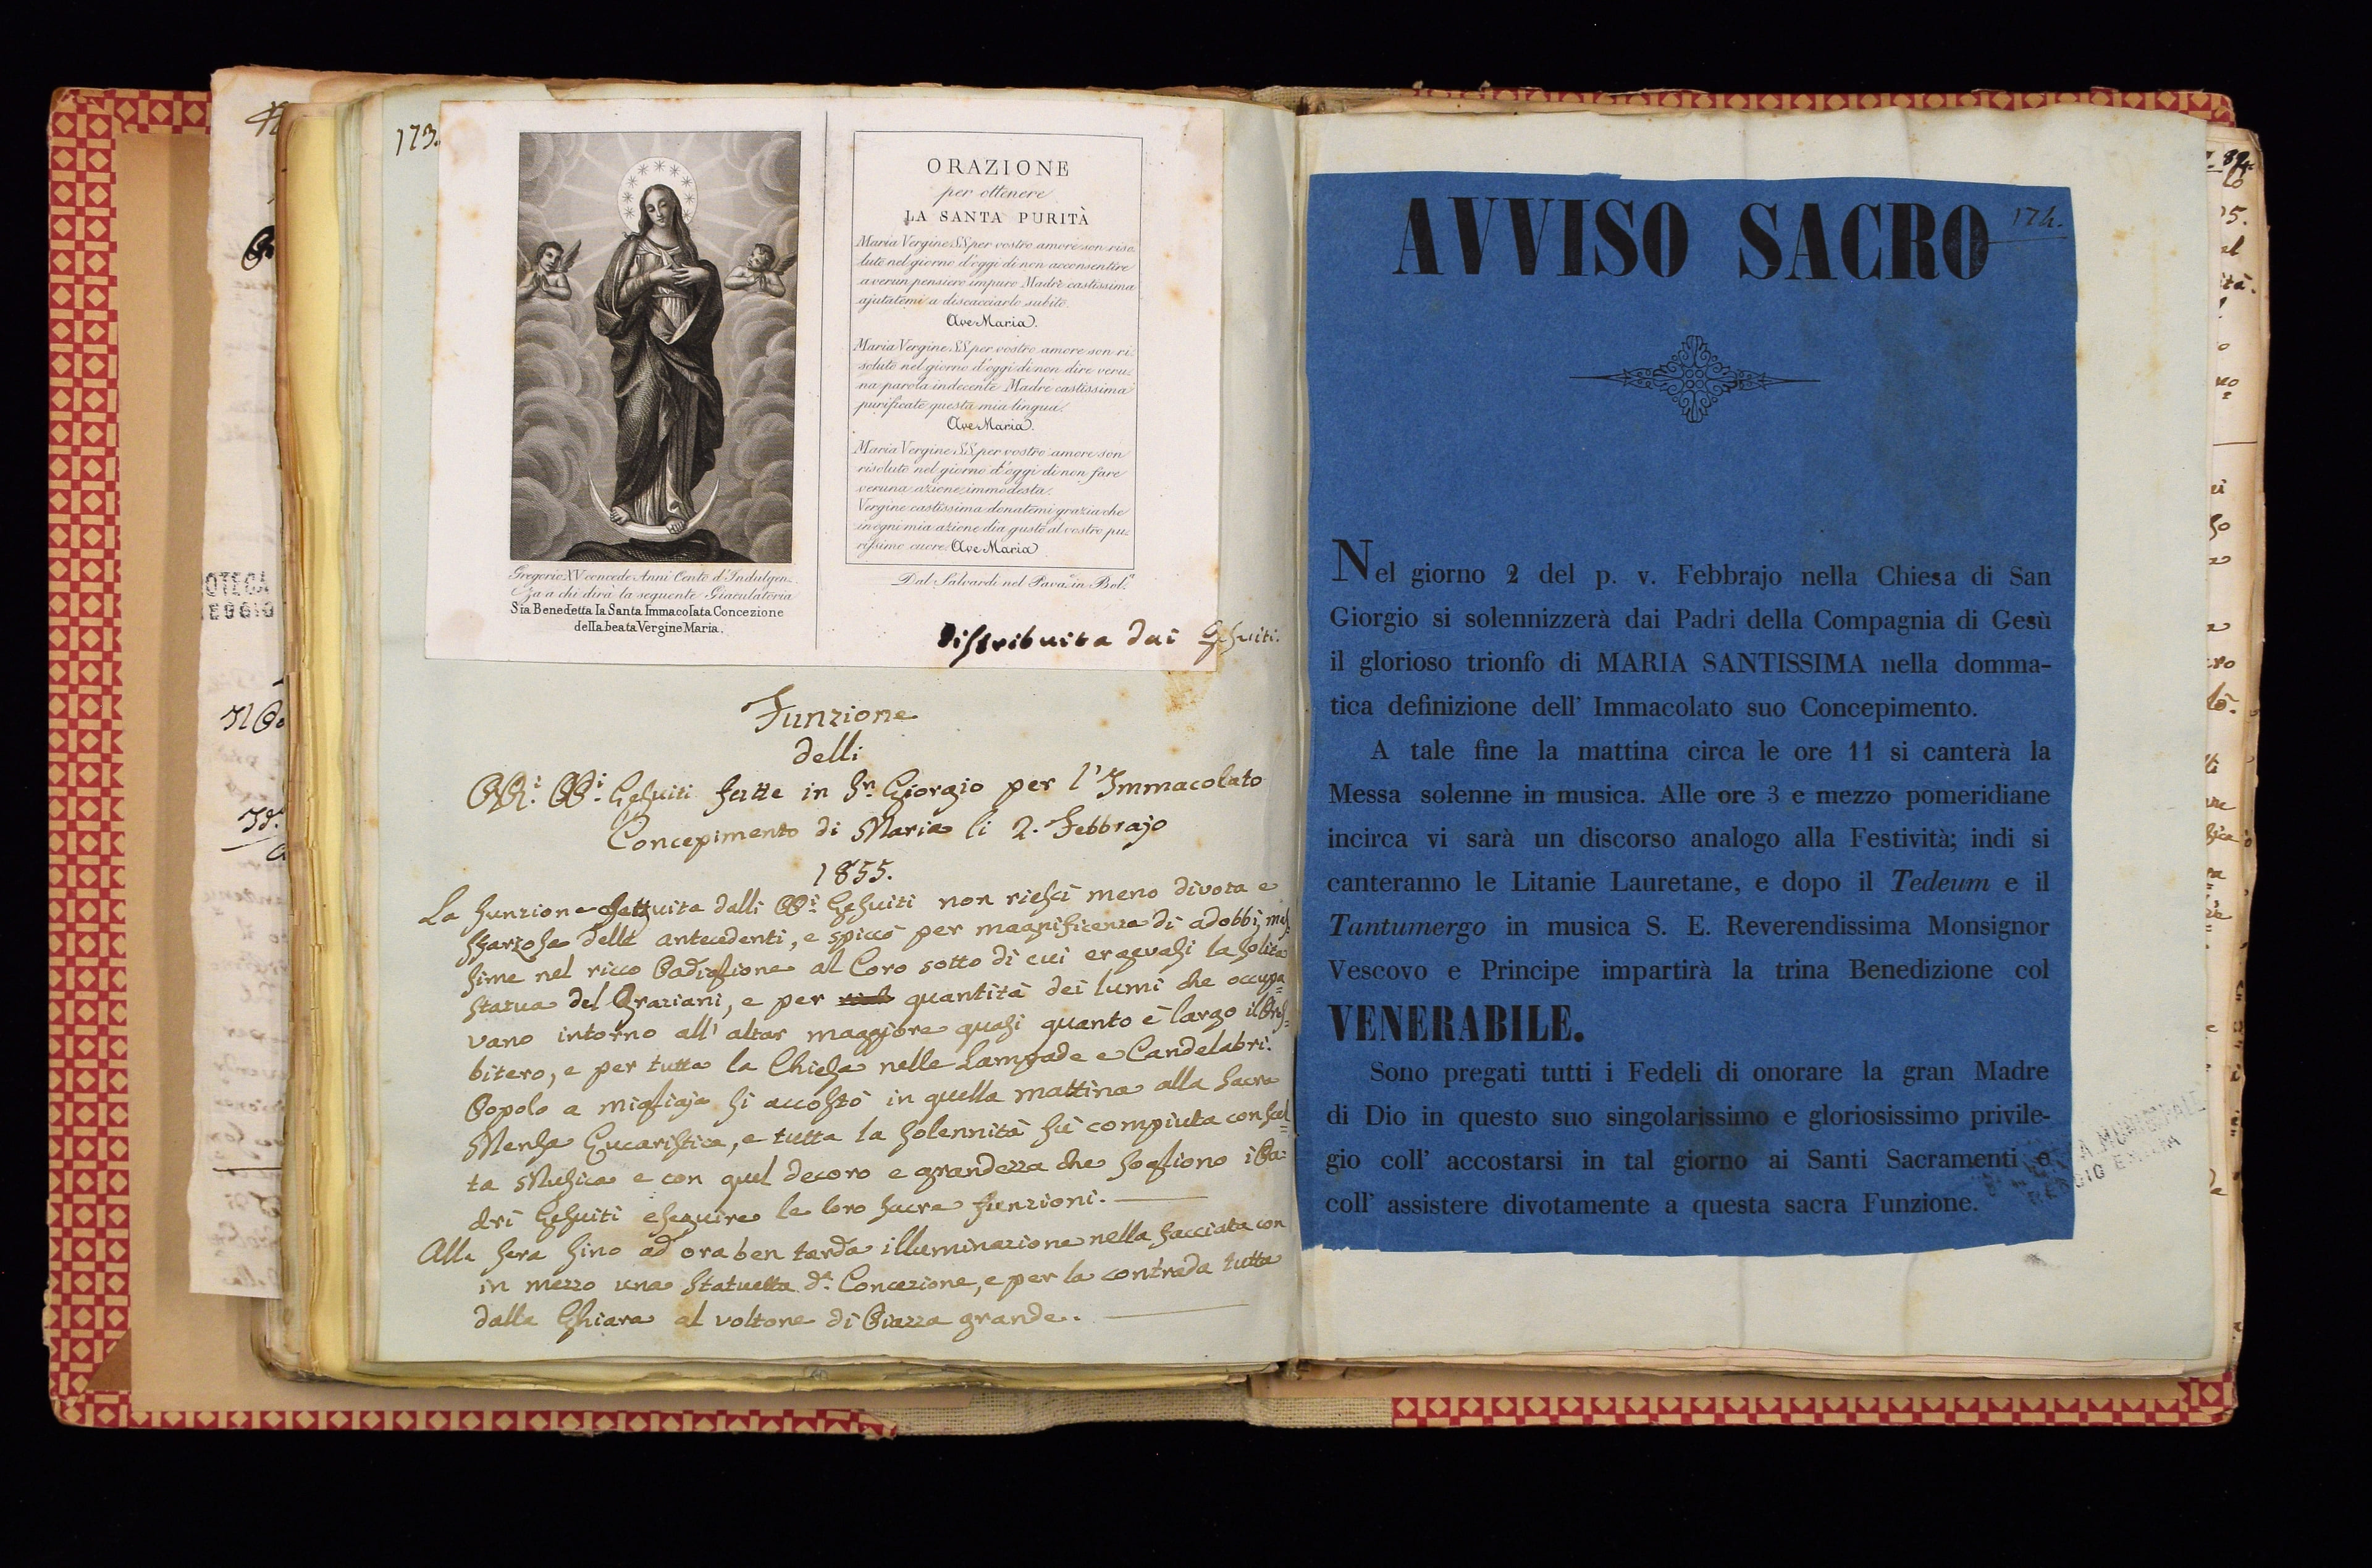 173.
ORAZIONE
per ottenere
LA SANTA PURITÀ
Maria Vergine SS. per vostro amore son riso-
luto nel giorno d'oggi di non acconsentire
a verun pensiero impuro Madre castissima
ajutatemi a discacciarlo subito.
Ave Maria.
Maria Vergine SS. per vostro amore son ri-
soluto nel giorno d'oggi di non dire veru-
na parola indecente Madre castissima
purificate questa mia lingua.
Ave Maria.
Maria Vergine SS. per vostro amore son
risoluto nel giorno d'oggi di non fare
veruna azione immodesta.
Vergine castissima donatemi grazia che
in ogni mia azione dia gusto al vostro pu-
rissimo cuore. Ave Maria
Dal Salvardi nel Pava.n in Bol.a
Gregorio XV concede Anni Cento d'Indulgen-
za a chi dirà la seguente Giaculatoria
Sia Benedetta la Santa Immacolata Concezione
della beata Vergine Maria.
Distribuita dai Gesuiti.
Funzione
delli
RR.i PP.i Gesuiti fatte in Sn. Giorgio per l'Immacolato
Concepimento di Maria li 2. Febbrajo
1855.
La funzione delli PP.i Gesuiti non riescì meno divota e
sfarzosa delle antecedenti, e spiccò per magnificenza di adobbi, mas-
sime nel ricco Padiglione al Coro sotto di cui ergevasi la solita
statua del Graziani, e per quantità dei lumi che occupa=
vano intorno all' altar maggiore quasi quanto è largo il Pres=
bitero, e per tutta la Chiesa nelle Lampade e Candelabri.
Popolo a migliaja si accostò in quella mattina alla Sacra
Mensa Eucaristica, e tutta la solennità fù compiuta con scel=
ta Musica e con quel decoro e grandezza che sogliono i Pa=
dri Gesuiti eseguire le loro sacre funzioni.
Alla sera sino ad ora ben tarda illuminazione nella facciata con
in mezzo una statuetta d.a Concezione, e per la contrada tutta
dalla Ghiara al voltone di Piazza grande.
AVVISO SACRO
174.
Nel giorno 2 del p. v. Febbrajo nella Chiesa di San
Giorgio si solennizzerà dai Padri della Compagnia di Gesù
il glorioso trionfo di MARIA SANTISSIMA nella domma-
tica definizione dell' Immacolato suo Concepimento.
A tale fine la mattina circa le ore 11 si canterà la
Messa solenne in musica. Alle ore 3 e mezzo pomeridiane
incirca vi sarà un discorso analogo alla Festività; indi si
canteranno le Litanie Lauretane, e dopo il Tedeum e il
Tantumergo in musica S. E. Reverendissima Monsignor
Vescovo e Principe impartirà la trina Benedizione col
VENERABILE.
Sono pregati tutti i Fedeli di onorare la gran Madre
di Dio in questo suo singolarissimo e gloriosissimo privile-
gio coll' accostarsi in tal giorno ai Santi Sacramenti o
coll' assistere divotamente a questa sacra Funzione.